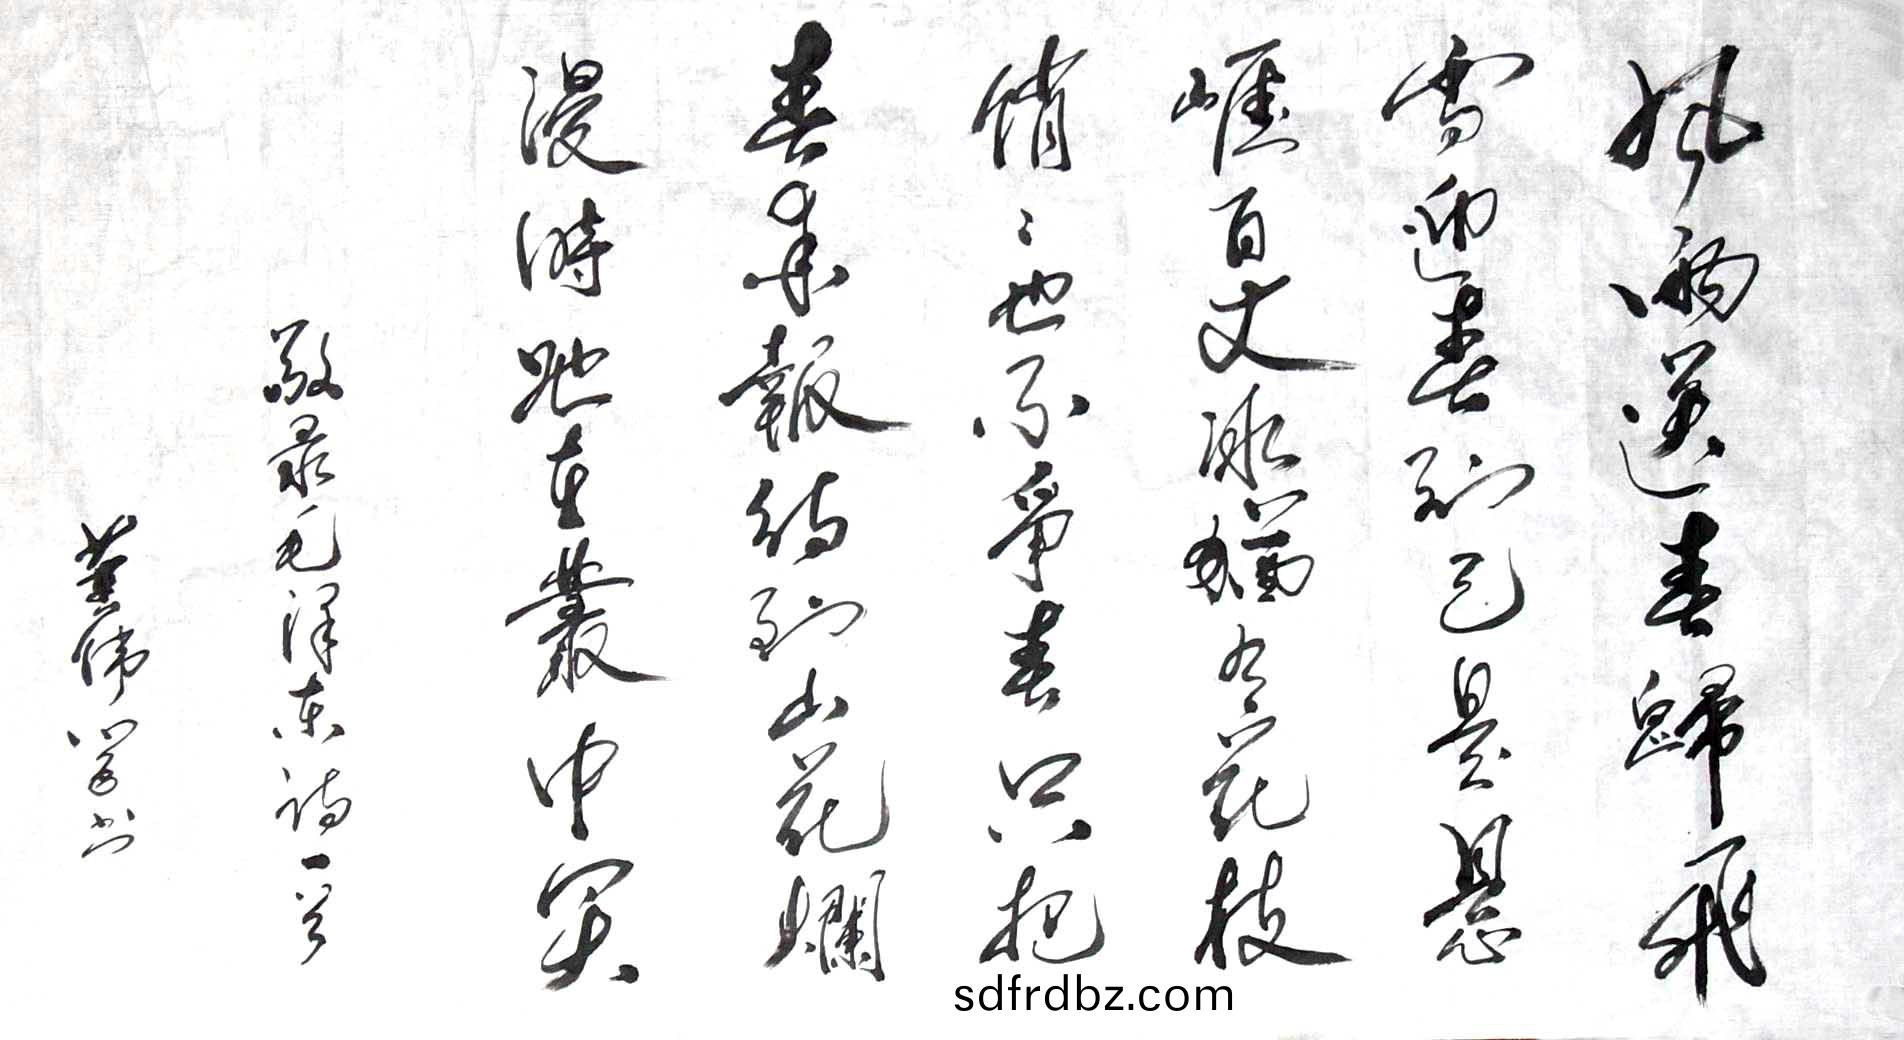 風雨送春歸飛
雪迎春到已是懸
崕百丈冰猶有花枝
俏〻也不爭春只把
春來報待到山花爛
漫時她在叢中笑
敬录毛泽东诗一首
黄伟学书
sdfrdbz.com